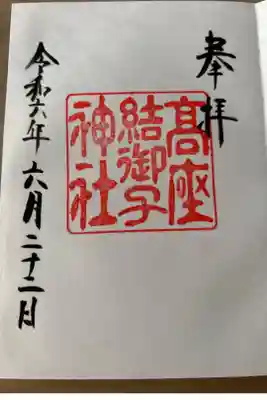 奉拝
高座
結御子
神社
令和六年六月二十二日